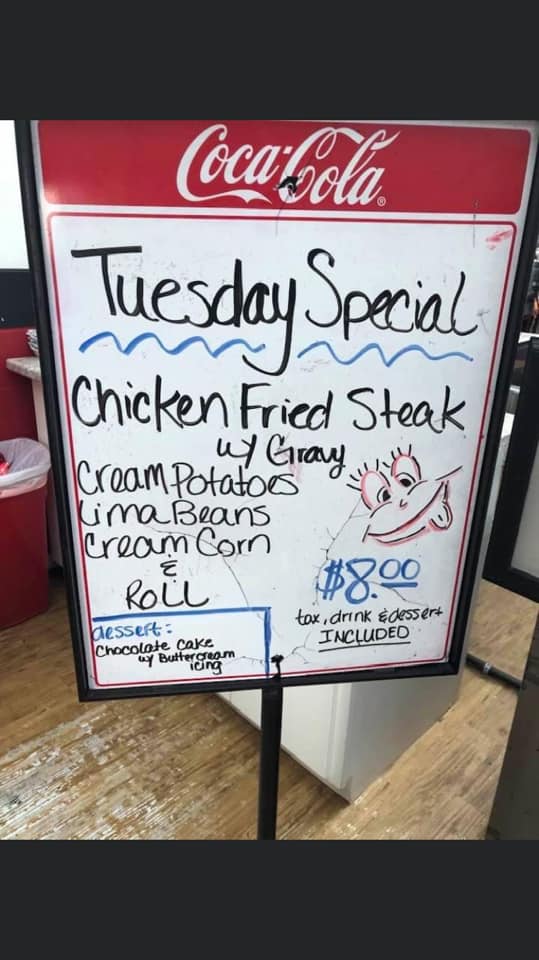 Coca-Cola®
Tuesday Special
Chicken Fried Steak
w/ Gravy
Cream Potatoes
Lima Beans
Cream Corn
&
ROLL
$8.00
tax, drink & dessert
INCLUDED
dessert:
Chocolate Cake
w/ Buttercream
icing